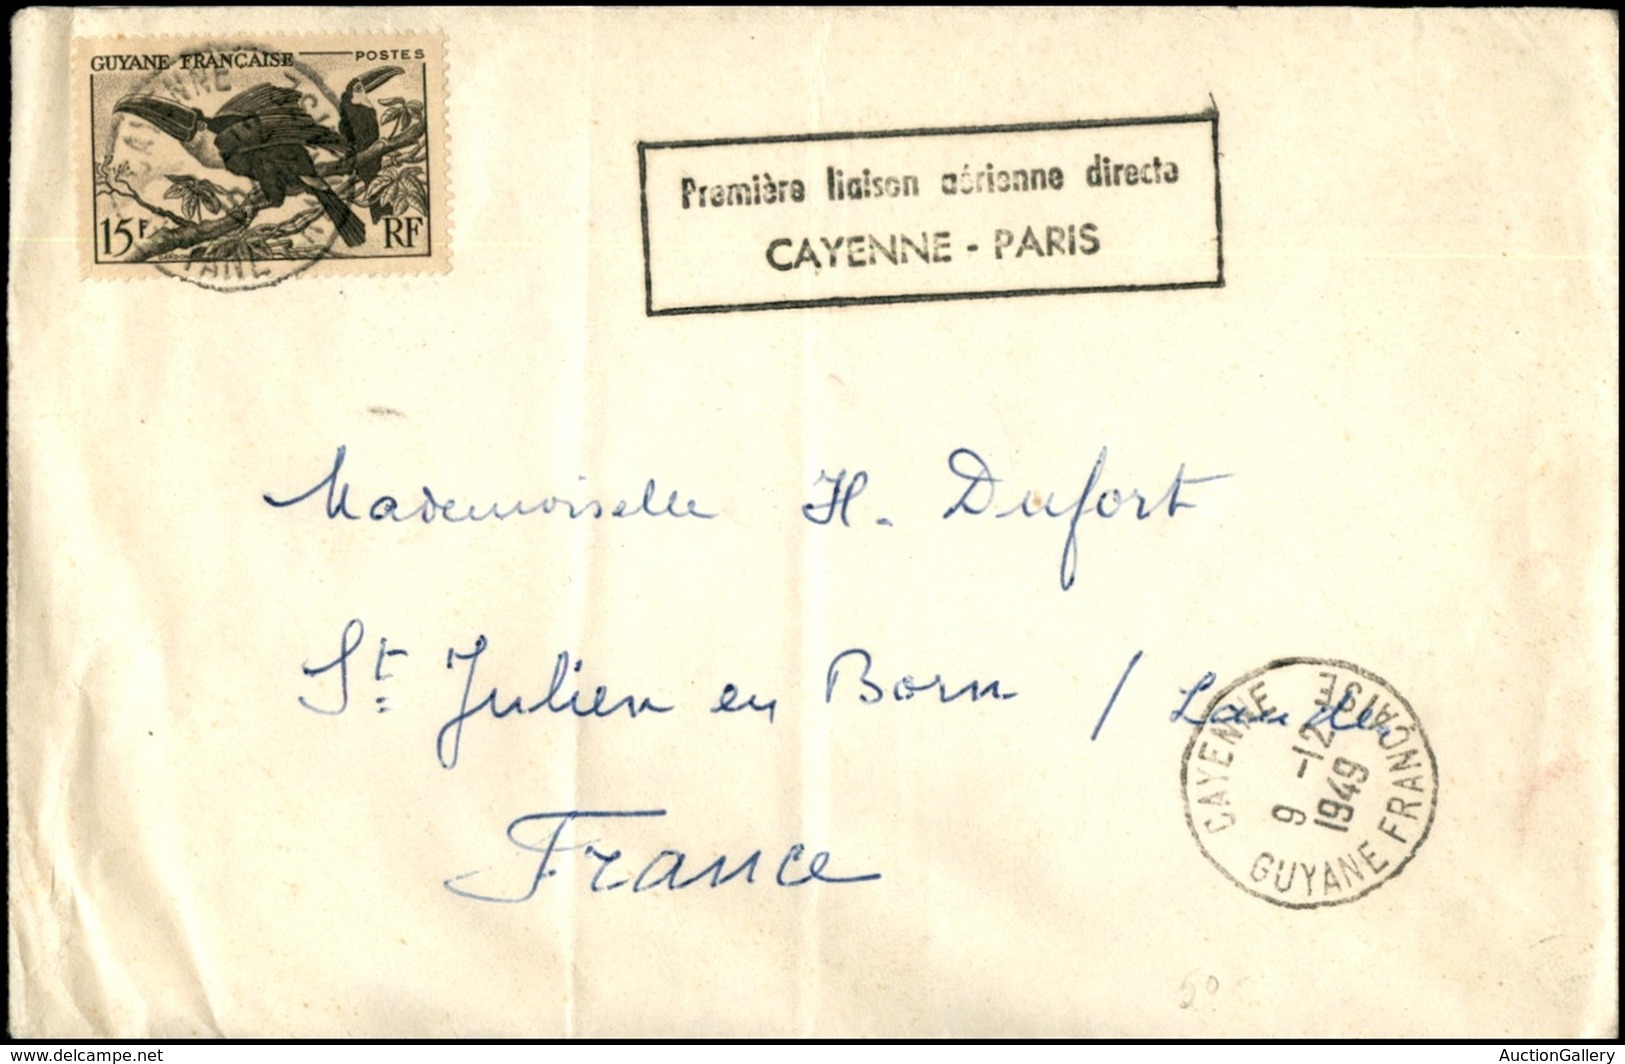 GUYANE FRANÇAISE POSTES
15F RF
CAYENNE
Première liaison aérienne directe
CAYENNE - PARIS
Mademoiselle H. Dufort
St. Julien en Born / Landes
France
CAYENNE
9 -12
1949
GUYANE FRANÇAISE
50
delcampe.net
AuctionGallery